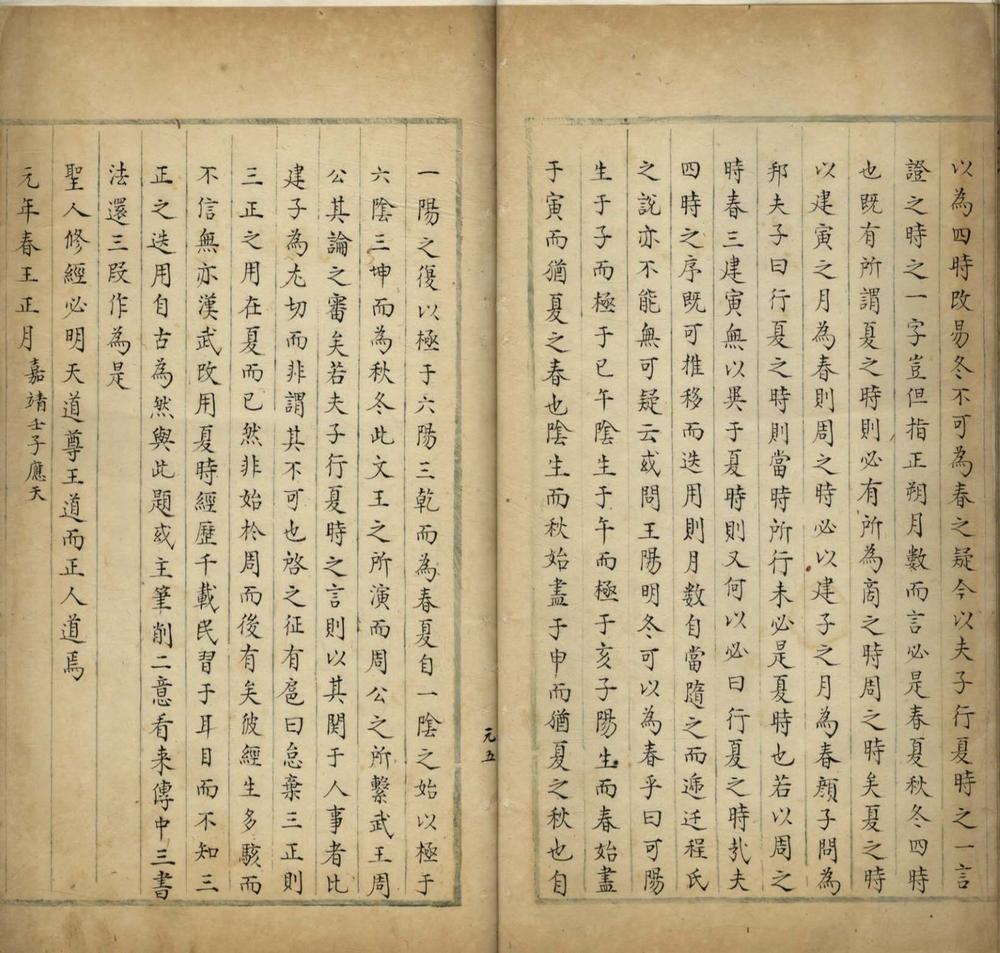 以為四時改易冬不可為春之疑今以夫子行夏時之一言
證之時之一字豈但指正朔月數而言必是春夏秋冬四時
也既有所謂夏之時則必有所為商之時周之時矣夏之時
以建寅之月為春則周之時必以建子之月為春顔子問為
邦夫子曰行夏之時則當時所行未必是夏時也若以周之
時春三建寅無以異于夏時則又何以必曰行夏之時㢤夫
四時之序既可推移而迭用則月數自當隨之而遞迁程氏
之說亦不能無可疑云或問王陽明冬可以為春乎曰可陽
生于子而極于巳午陰生于午而極于亥子陽生而春始盡
于寅而猶夏之春也陰生而秋始盡于申而猶夏之秋也自
一陽之復以極于六陽三乾而為春夏自一陰之始以極于
六陰三坤而為秋冬此文王之所演而周公之所繫武王周
公其論之審矣若夫子行夏時之言則以其関于人事者比
建子為尤切而非謂其不可也啓之征有扈曰怠棄三正則
三正之用在夏而已然非始於周而後有矣彼經生多駭而
不信無亦漢武改用夏時經歷千載民習于耳目而不知三
正之迭用自古為然與此題或主筆削二意看来傳中三書
法還三段作為是
聖人修經必明天道尊王道而正人道焉
元年春王正月 嘉靖壬子應天
元五